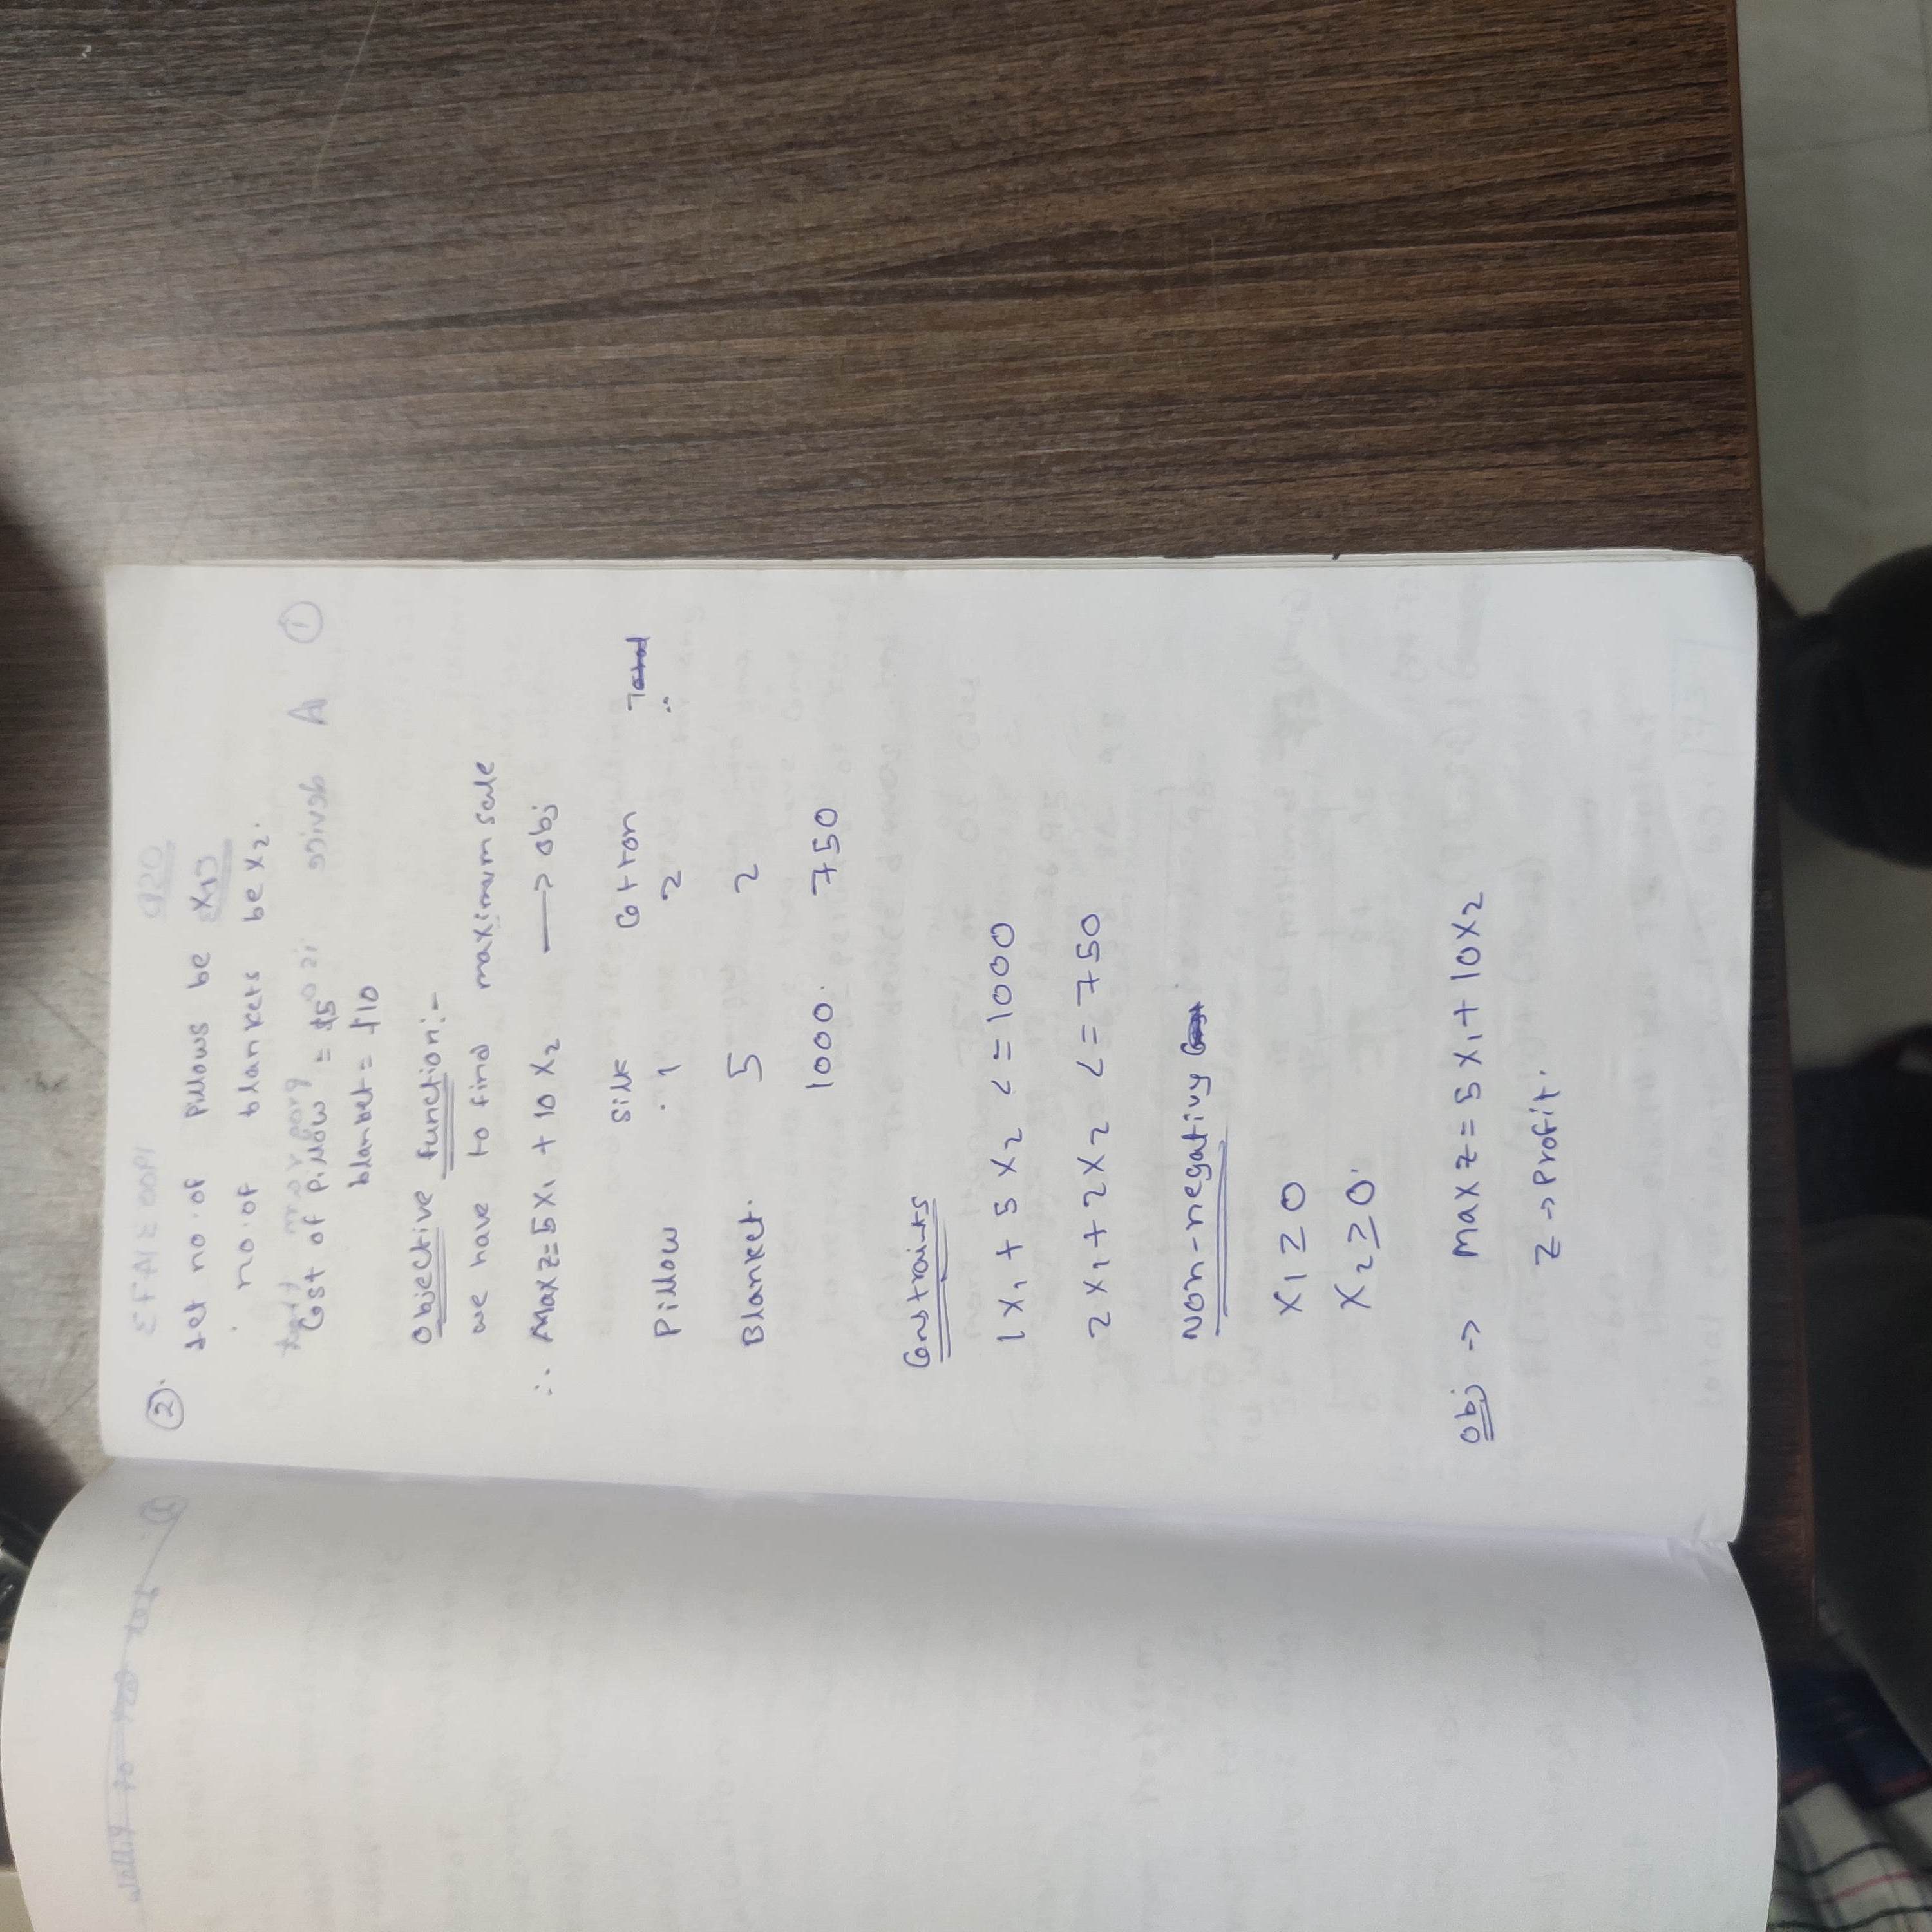 ②.
Let no.of pillows be x₁
no.of blankets be x₂.
Cost of pillow = $5
blanket = $10
Objective function:-
we have to find maximum sale
∴ Max z= 5x₁ + 10x₂ → obj
Silk Cotton Total
Pillow 1 2
Blanket. 5 2
1000. 750
Constraints
1x₁ + 5x₂ <= 1000
2x₁ + 2x₂ <= 750
Non-negativy
x₁ ≥ 0
x₂ ≥ 0.
obj → Max z = 5x₁ + 10x₂
z → Profit.